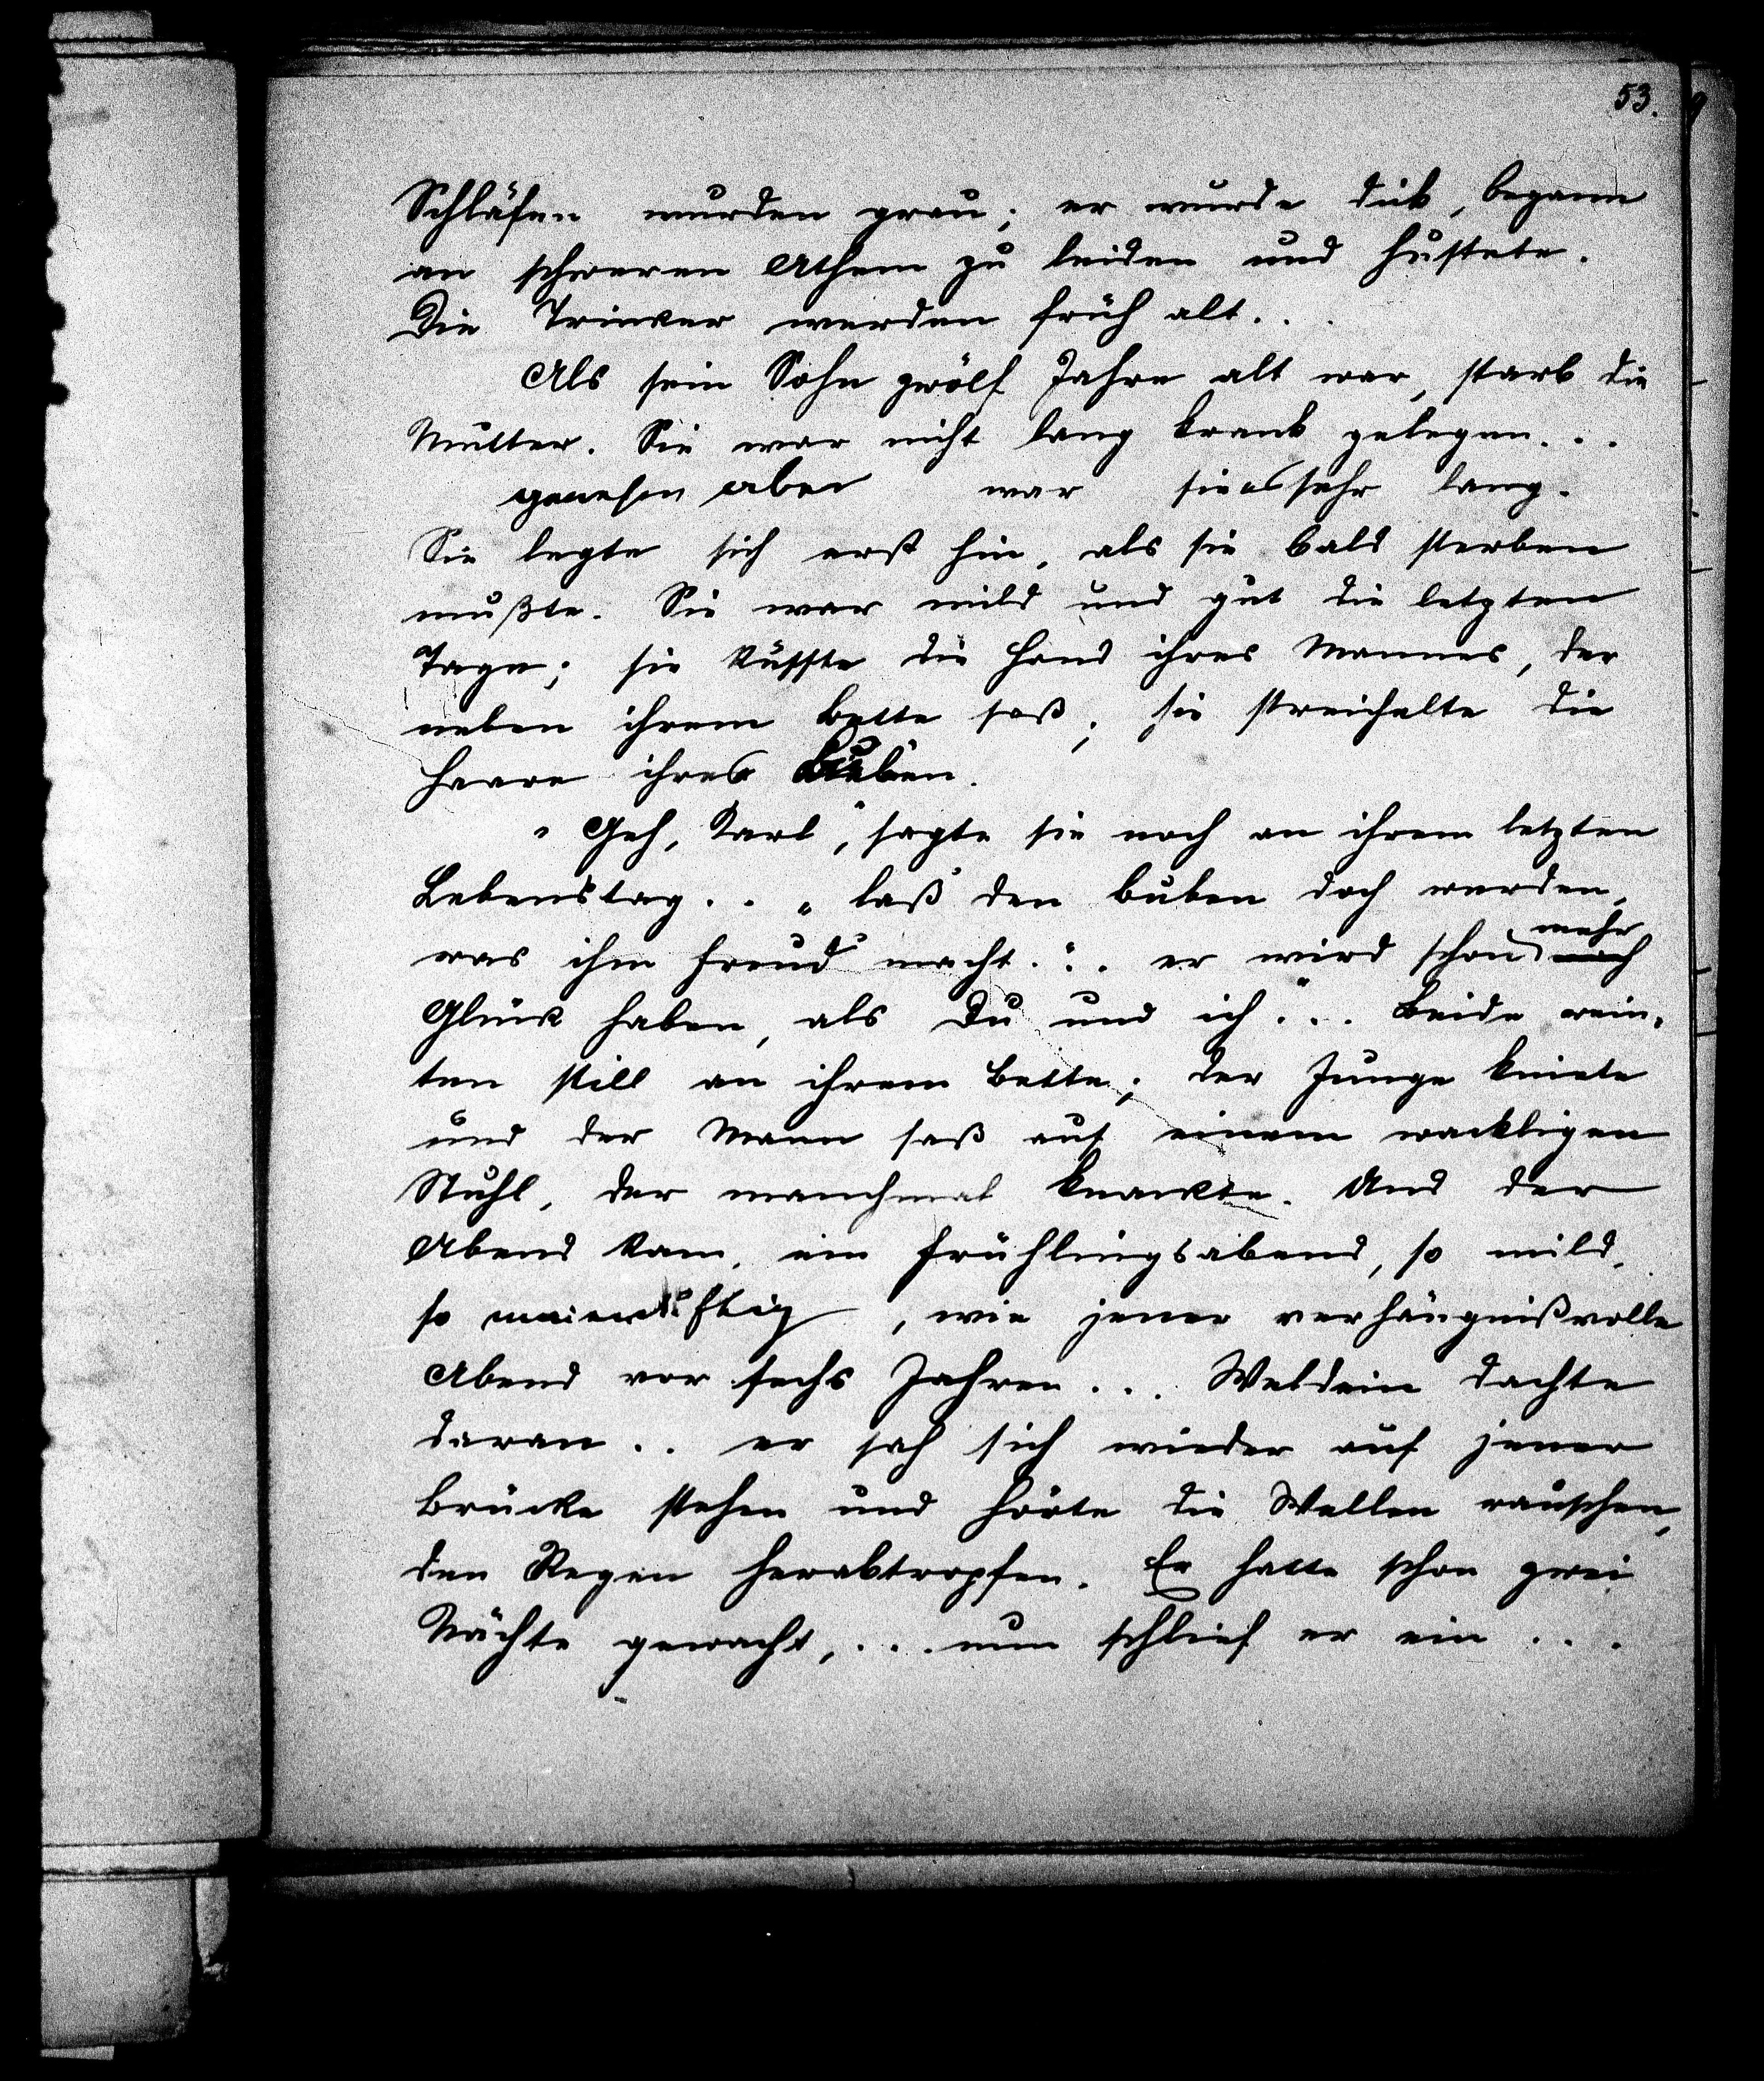 53.
Schläfen wurden grau; er wurde dick, begann
an schweren Athem zu leiden und hustete.
Die Trinker werden früh alt...
Als sein Sohn zwölf Jahre alt war, starb die
Mutter. Sie war nicht lang krank gelegen...
gewesen aber war sie es sehr lang.
Sie legte sich erst hin, als sie bald sterben
mußte. Sie war mild und gut die letzten
Tage; sie küsste die Hand ihres Mannes, der
neben ihrem Bette saß; sie streichelte die
Haare ihres Buben.
"Geh, Karl", sagte sie noch an ihrem letzten
Lebenstag.. "laß den Buben doch werden,
was ihm Freud' macht... er wird schon mehr noch
Glück haben, als Du und ich"... Beide wein-
ten still an ihrem Bette; der Junge kniete
und der Mann saß auf einem wackligen
Stuhl, der manchmal knackte. Und der
Abend kam, ein Frühlingsabend, so mild,
so maienduftig, wie jener verhängnißvolle
Abend vor sechs Jahren... Weldein dachte
daran.. er sah sich wieder auf jener
Brücke stehen und hörte die Wellen rauschen,
den Regen herabtropfen. Er hatte schon zwei
Nächte gewacht,... nun schlief er ein...